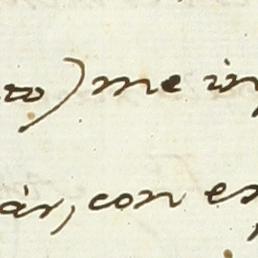 to) me in
ár, con es